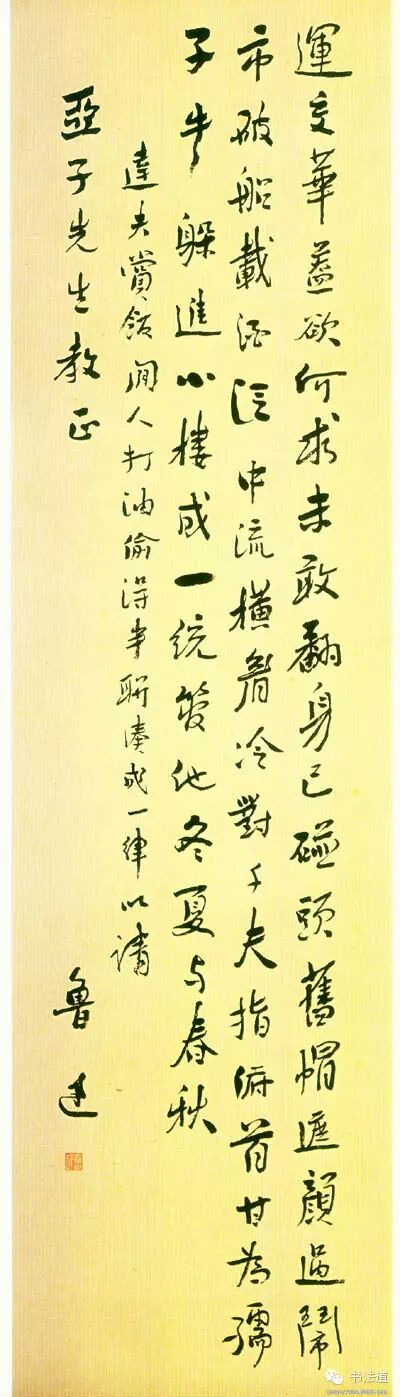 運交華蓋欲何求未敢翻身已碰頭舊帽遮顏過鬧
市破船載酒泛中流橫眉冷對千夫指俯首甘為孺
子牛躲進小樓成一統管他冬夏与春秋
達夫賞飯閒人打油偷得半聯湊成一律以請
亞子先生教正
魯迅
书法道